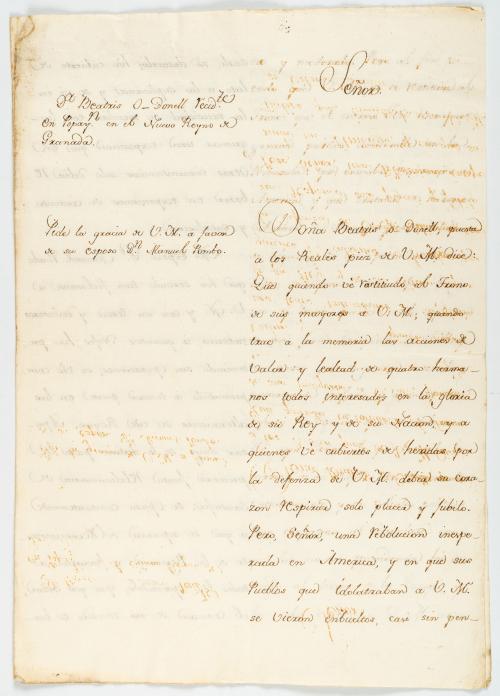 Señor.
Dª Beatris O-Donell recid.te
en Popay.n en el Nuevo Reyno de
Granada.
Pide la gracia de V. M. a favor
de su esposo Dn. Manuel Pombo.
Doña Beatris O Donell, puesta
a los Reales pies de V. M. dice:
Que quando ve restituido al Trono
de sus mayores a V. M.; quando
trae a la memoria las acciones de
valor y lealtad de quatro herma-
nos todos interesados en la gloria
de su Rey y de su Nacion, y a
quienes ve cubiertos de heridas por
la defenza de V. M. debia su cora-
zon respirar solo placer y jubilo.
Pero, Señor, una rebolucion inespe-
rada en America, y en que sus
Pueblos que idolatraban a V. M.
se vieron enbueltos, casi sin pen-